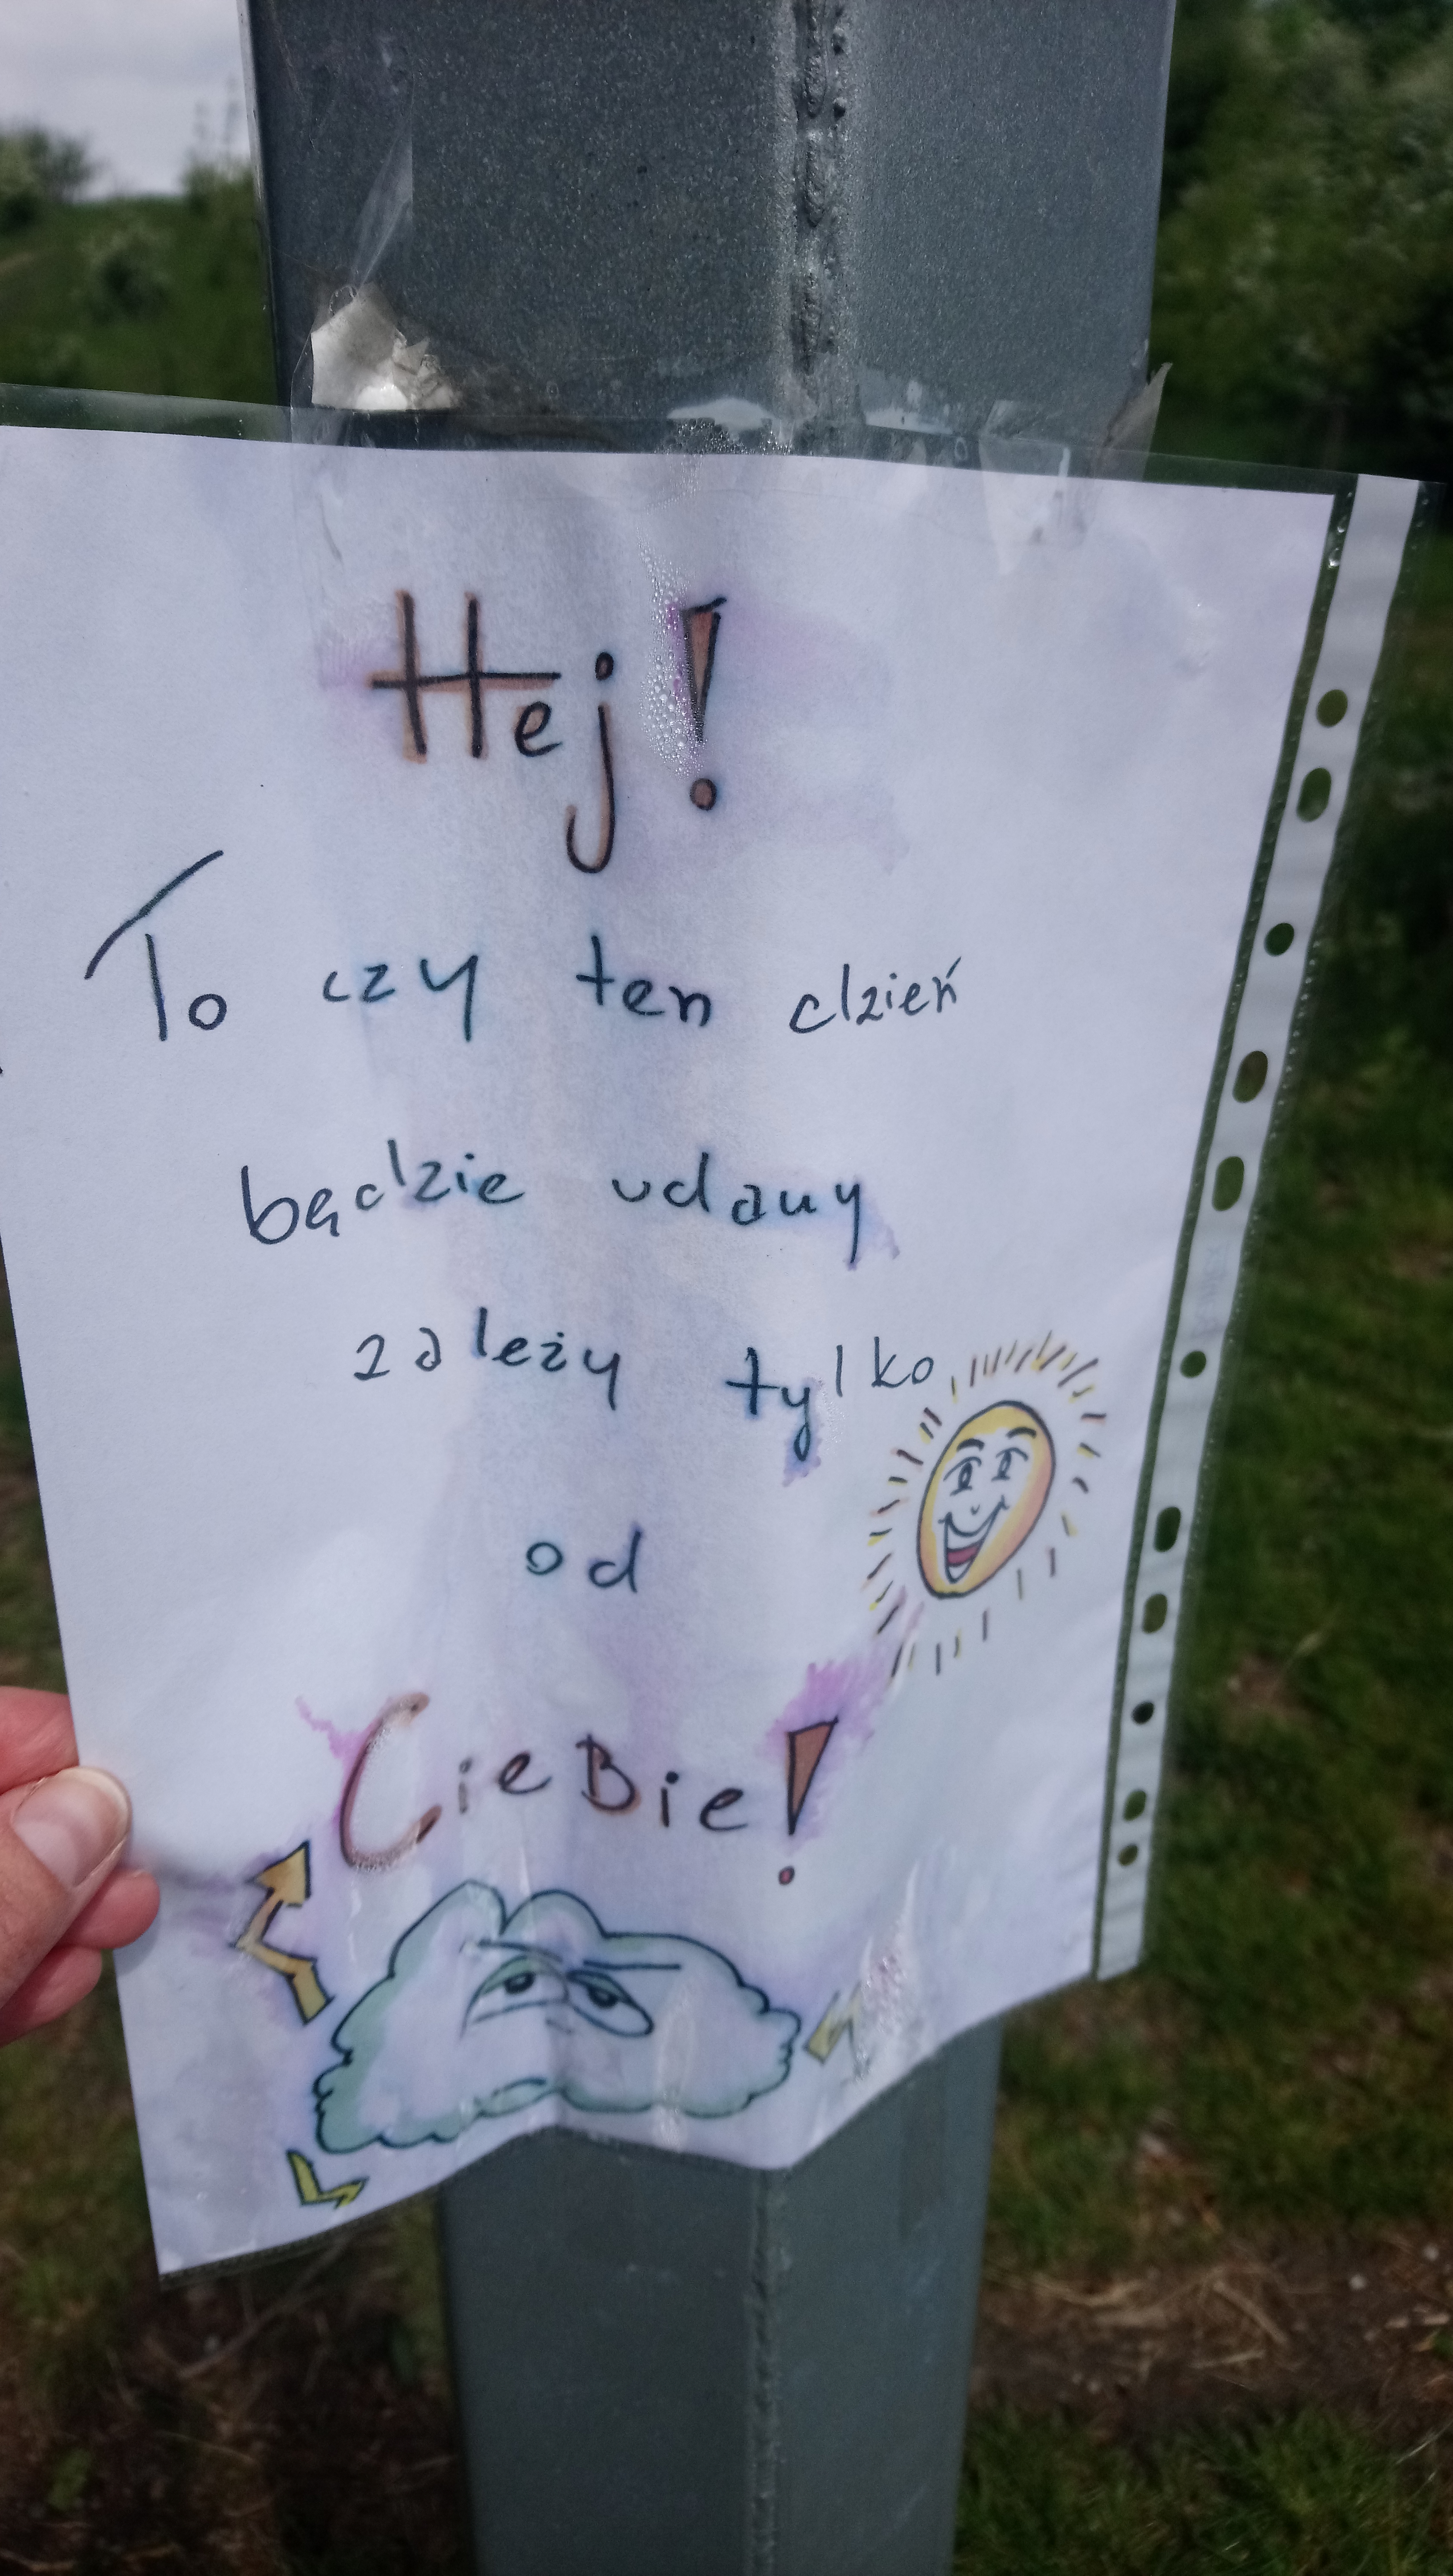 Hej!
To czy ten dzień
będzie udany
zależy tylko
od
CieBie!